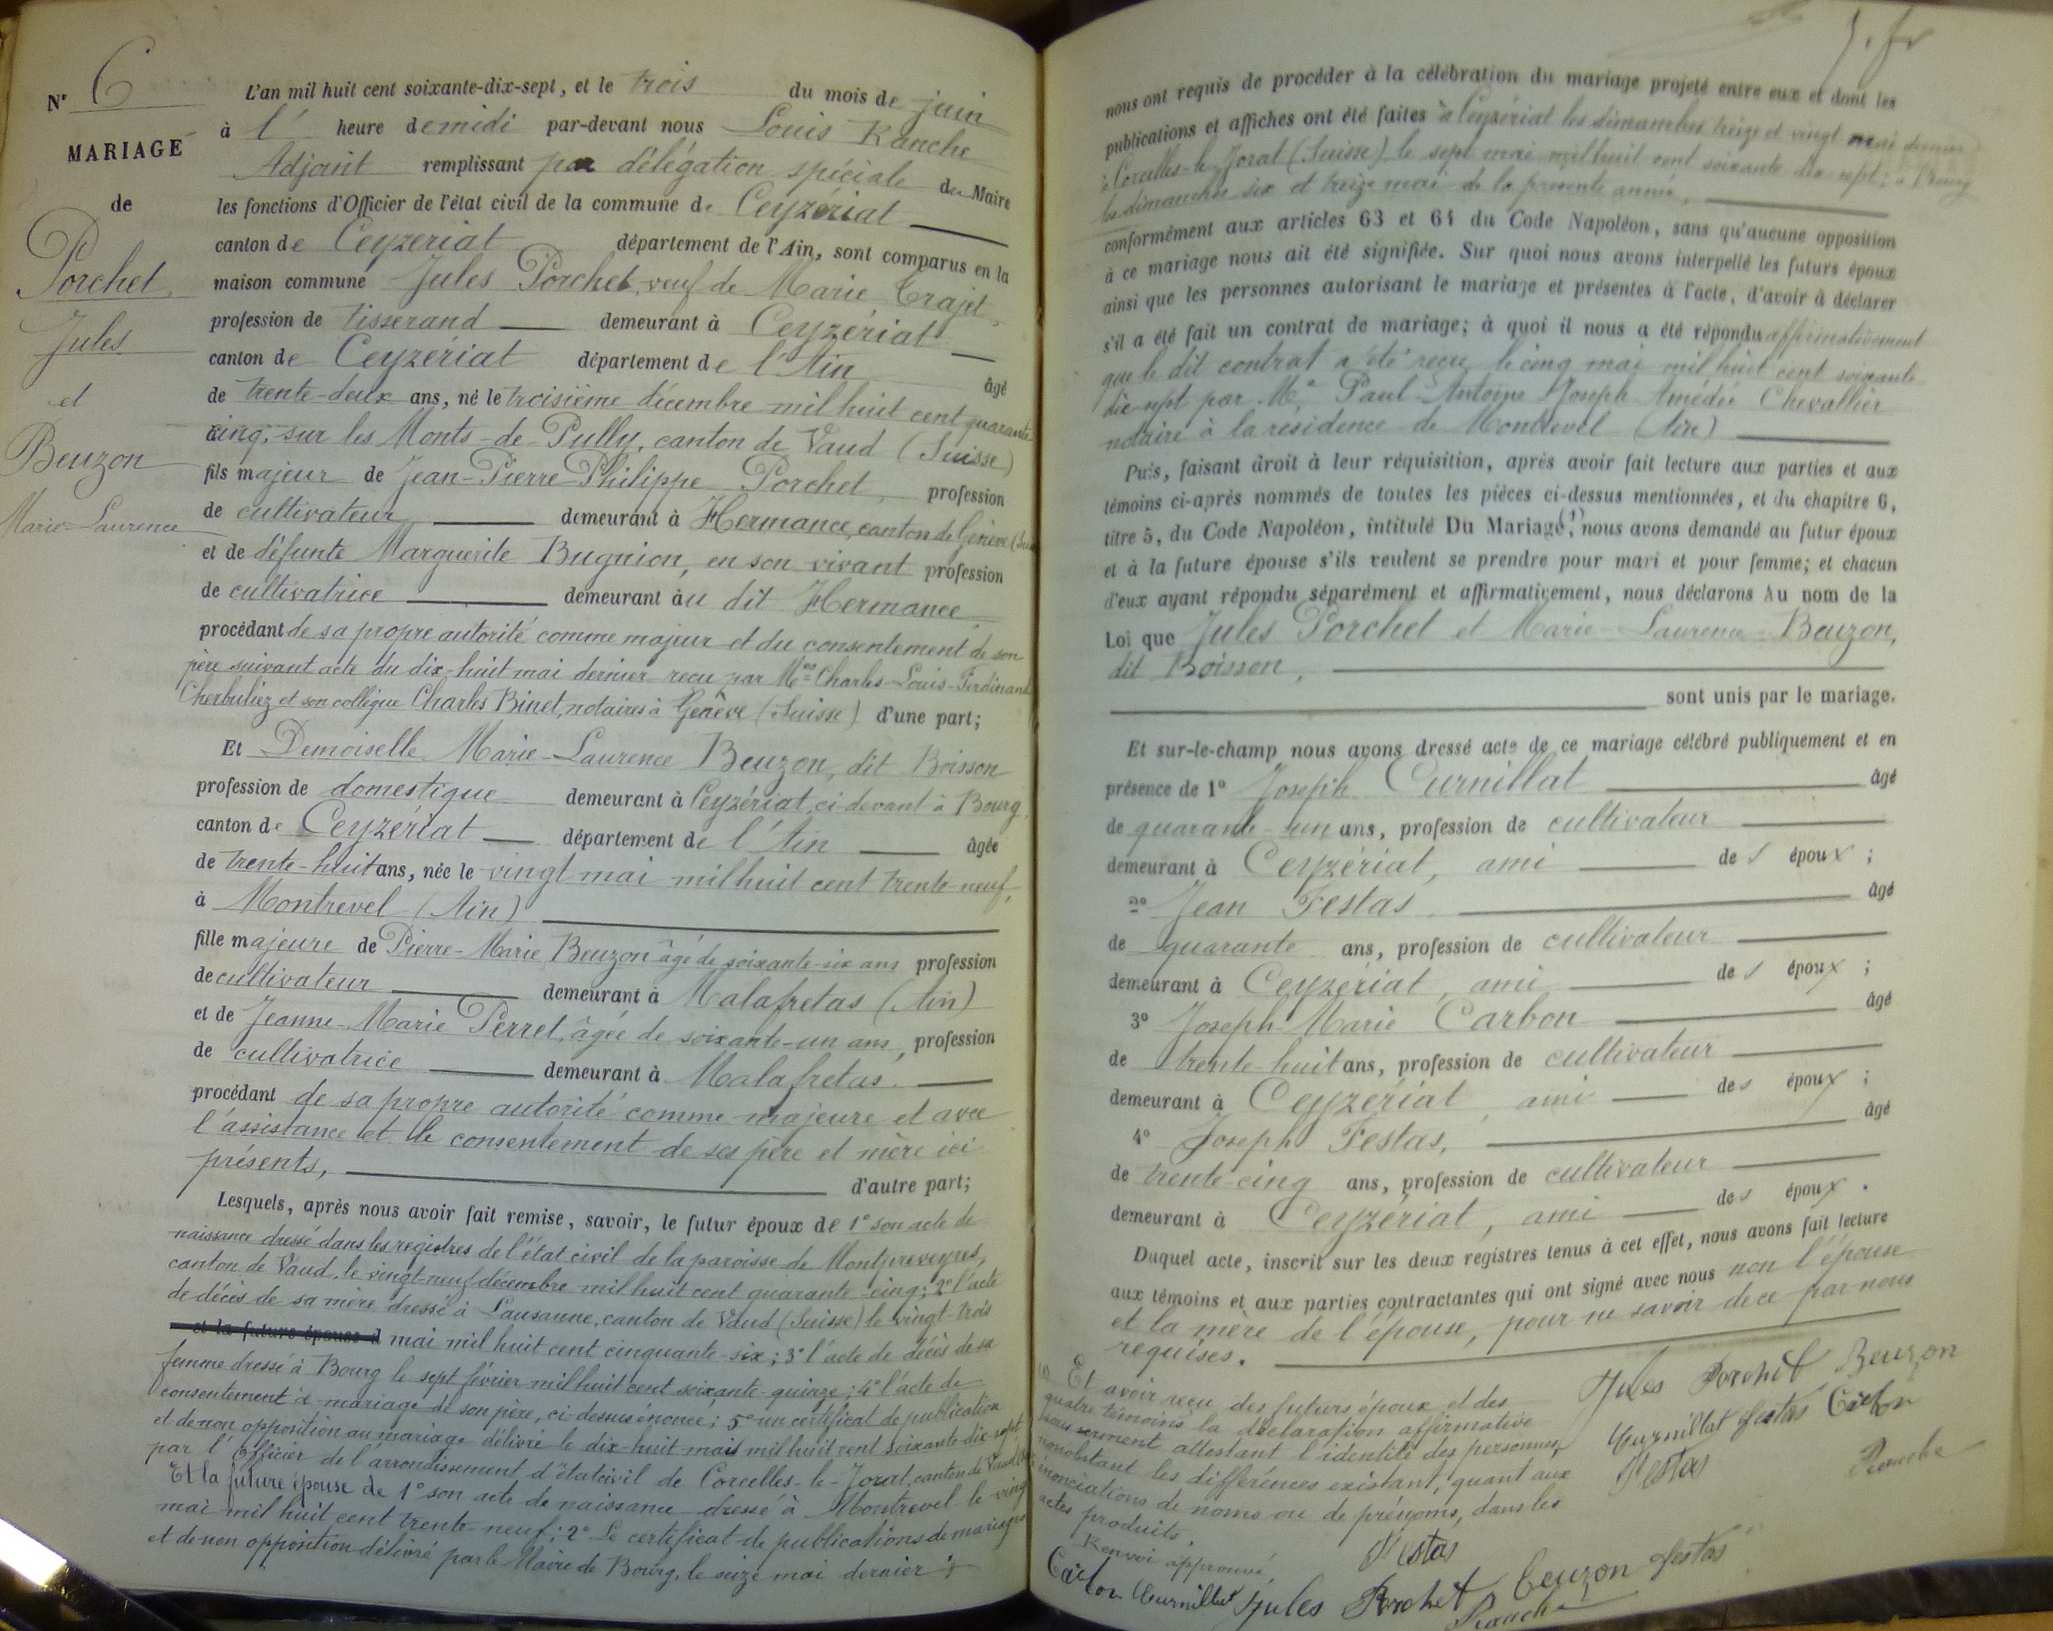 N° 6
MARIAGE
de
Porchet
Jules
et
Beuzon
Marie-Laurence
L'an mil huit cent soixante-dix-sept, et le trois du mois de juin
à l' heure de midi par-devant nous Louis Ranche
Adjoint remplissant par délégation spéciale du Maire
les fonctions d'Officier de l'état civil de la commune de Ceyzériat
canton de Ceyzériat département de l'Ain, sont comparus en la
maison commune Jules Porchet, veuf de Marie Trajet,
profession de tisserand demeurant à Ceyzériat
canton de Ceyzériat département de l'Ain âgé
de trente-deux ans, né le troisième décembre mil huit cent quarante
cinq, sur les Monts-de-Pully, canton de Vaud (Suisse)
fils majeur de Jean-Pierre-Philippe Porchet, profession
de cultivateur demeurant à Hermance, canton de Genève
et de défunte Marguerite Bugnion, en son vivant profession
de cultivatrice demeurant àu dit Hermance,
procédant de sa propre autorité comme majeur et du consentement de son
père suivant acte du dix-huit mai dernier reçu par Mes Charles-Louis-Ferdinand
Cherbuliez et son collègue Charles Binet, notaires à Genève (Suisse) d'une part;
Et Demoiselle Marie-Laurence Beuzon, dit Boisson
profession de domestique demeurant à Ceyzériat, ci-devant à Bourg,
canton de Ceyzériat département de l'Ain âgée
de trente-huit ans, née le vingt mai mil huit cent trente-neuf,
à Montrevel (Ain)
fille majeure de Pierre-Marie Beuzon âgé de soixante-six ans profession
de cultivateur demeurant à Malafretas (Ain)
et de Jeanne-Marie Perret, âgée de soixante-un ans, profession
de cultivatrice demeurant à Malafretas.
procédant de sa propre autorité comme majeure et avec
l'assistance et le consentement de ses père et mère ici
présents, d'autre part;
Lesquels, après nous avoir fait remise, savoir, le futur époux de 1° son acte de
naissance dressé dans les registres de l'état civil de la paroisse de Montpreveyres,
canton de Vaud, le vingt-neuf décembre mil huit cent quarante-cinq; 2° l'acte
de décès de sa mère dressé à Lausanne, canton de Vaud (Suisse) le vingt-trois
et la future épouse d mai mil huit cent cinquante-six; 3° l'acte de décès de sa
femme dressé à Bourg le sept février mil huit cent soixante-quinze; 4° l'acte de
consentement à mariage de son père, ci-dessus énoncé; 5° un certificat de publication
et de non opposition au mariage délivré le dix-huit mai mil huit cent soixante-dix-sept
par l'Officier de l'arrondissement d'état civil de Corcelles-le-Jorat, canton de Vaud
Et la future épouse de 1° son acte de naissance dressé à Montrevel le vingt
mai mil huit cent trente-neuf; 2° Le certificat de publications de mariage
et de non opposition délivré par le Maire de Bourg, le seize mai dernier;
nous ont requis de procéder à la célébration du mariage projeté entre eux et dont les
publications et affiches ont été faites à Ceyzériat les dimanches treize et vingt mai dernier
à Corcelles-le-Jorat (Suisse) le sept mai mil huit cent soixante dix-sept; à Bourg
les dimanches six et treize mai de la présente année,
conformément aux articles 63 et 64 du Code Napoléon, sans qu'aucune opposition
à ce mariage nous ait été signifiée. Sur quoi nous avons interpellé les futurs époux
ainsi que les personnes autorisant le mariage et présentes à l'acte, d'avoir à déclarer
s'il a été fait un contrat de mariage; à quoi il nous a été répondu affirmativement
que le dit contrat a été reçu le cinq mai mil huit cent soixante
dix-sept par Me Paul-Antoine Joseph Amédée Chevallier
notaire à la résidence de Montrevel (Ain)
Puis, faisant droit à leur réquisition, après avoir fait lecture aux parties et aux
témoins ci-après nommés de toutes les pièces ci-dessus mentionnées, et du chapitre 6,
titre 5, du Code Napoléon, intitulé Du Mariage (1), nous avons demandé au futur époux
et à la future épouse s'ils veulent se prendre pour mari et pour femme; et chacun
d'eux ayant répondu séparément et affirmativement, nous déclarons Au nom de la
Loi que Jules Porchet et Marie-Laurence Beuzon,
dit Boisson,
sont unis par le mariage.
Et sur-le-champ nous avons dressé acte de ce mariage célébré publiquement et en
présence de 1° Joseph Curnillat âgé
de quarante-un ans, profession de cultivateur
demeurant à Ceyzériat, ami des époux;
2° Jean Festas, âgé
de quarante ans, profession de cultivateur
demeurant à Ceyzériat, ami des époux;
3° Joseph-Marie Carbon âgé
de trente-huit ans, profession de cultivateur
demeurant à Ceyzériat, ami des époux;
4° Joseph Festas, âgé
de trente-cinq ans, profession de cultivateur
demeurant à Ceyzériat, ami des époux.
Duquel acte, inscrit sur les deux registres tenus à cet effet, nous avons fait lecture
aux témoins et aux parties contractantes qui ont signé avec nous non l'épouse
et la mère de l'épouse, pour ne savoir de ce par nous
requises.
(1) Et avoir reçu des futurs époux et des
quatre témoins la déclaration affirmative
sous serment attestant l'identité des personnes,
nonobstant les différences existant, quant aux
énonciations de noms ou de prénoms, dans les
actes produits.
Renvoi approuvé,
Jules Porchet Beuzon
Curnillat Festas Carbon
Festas Ranche
Festas
Carbon Curnillat Jules Porchet Beuzon Festas
Ranche